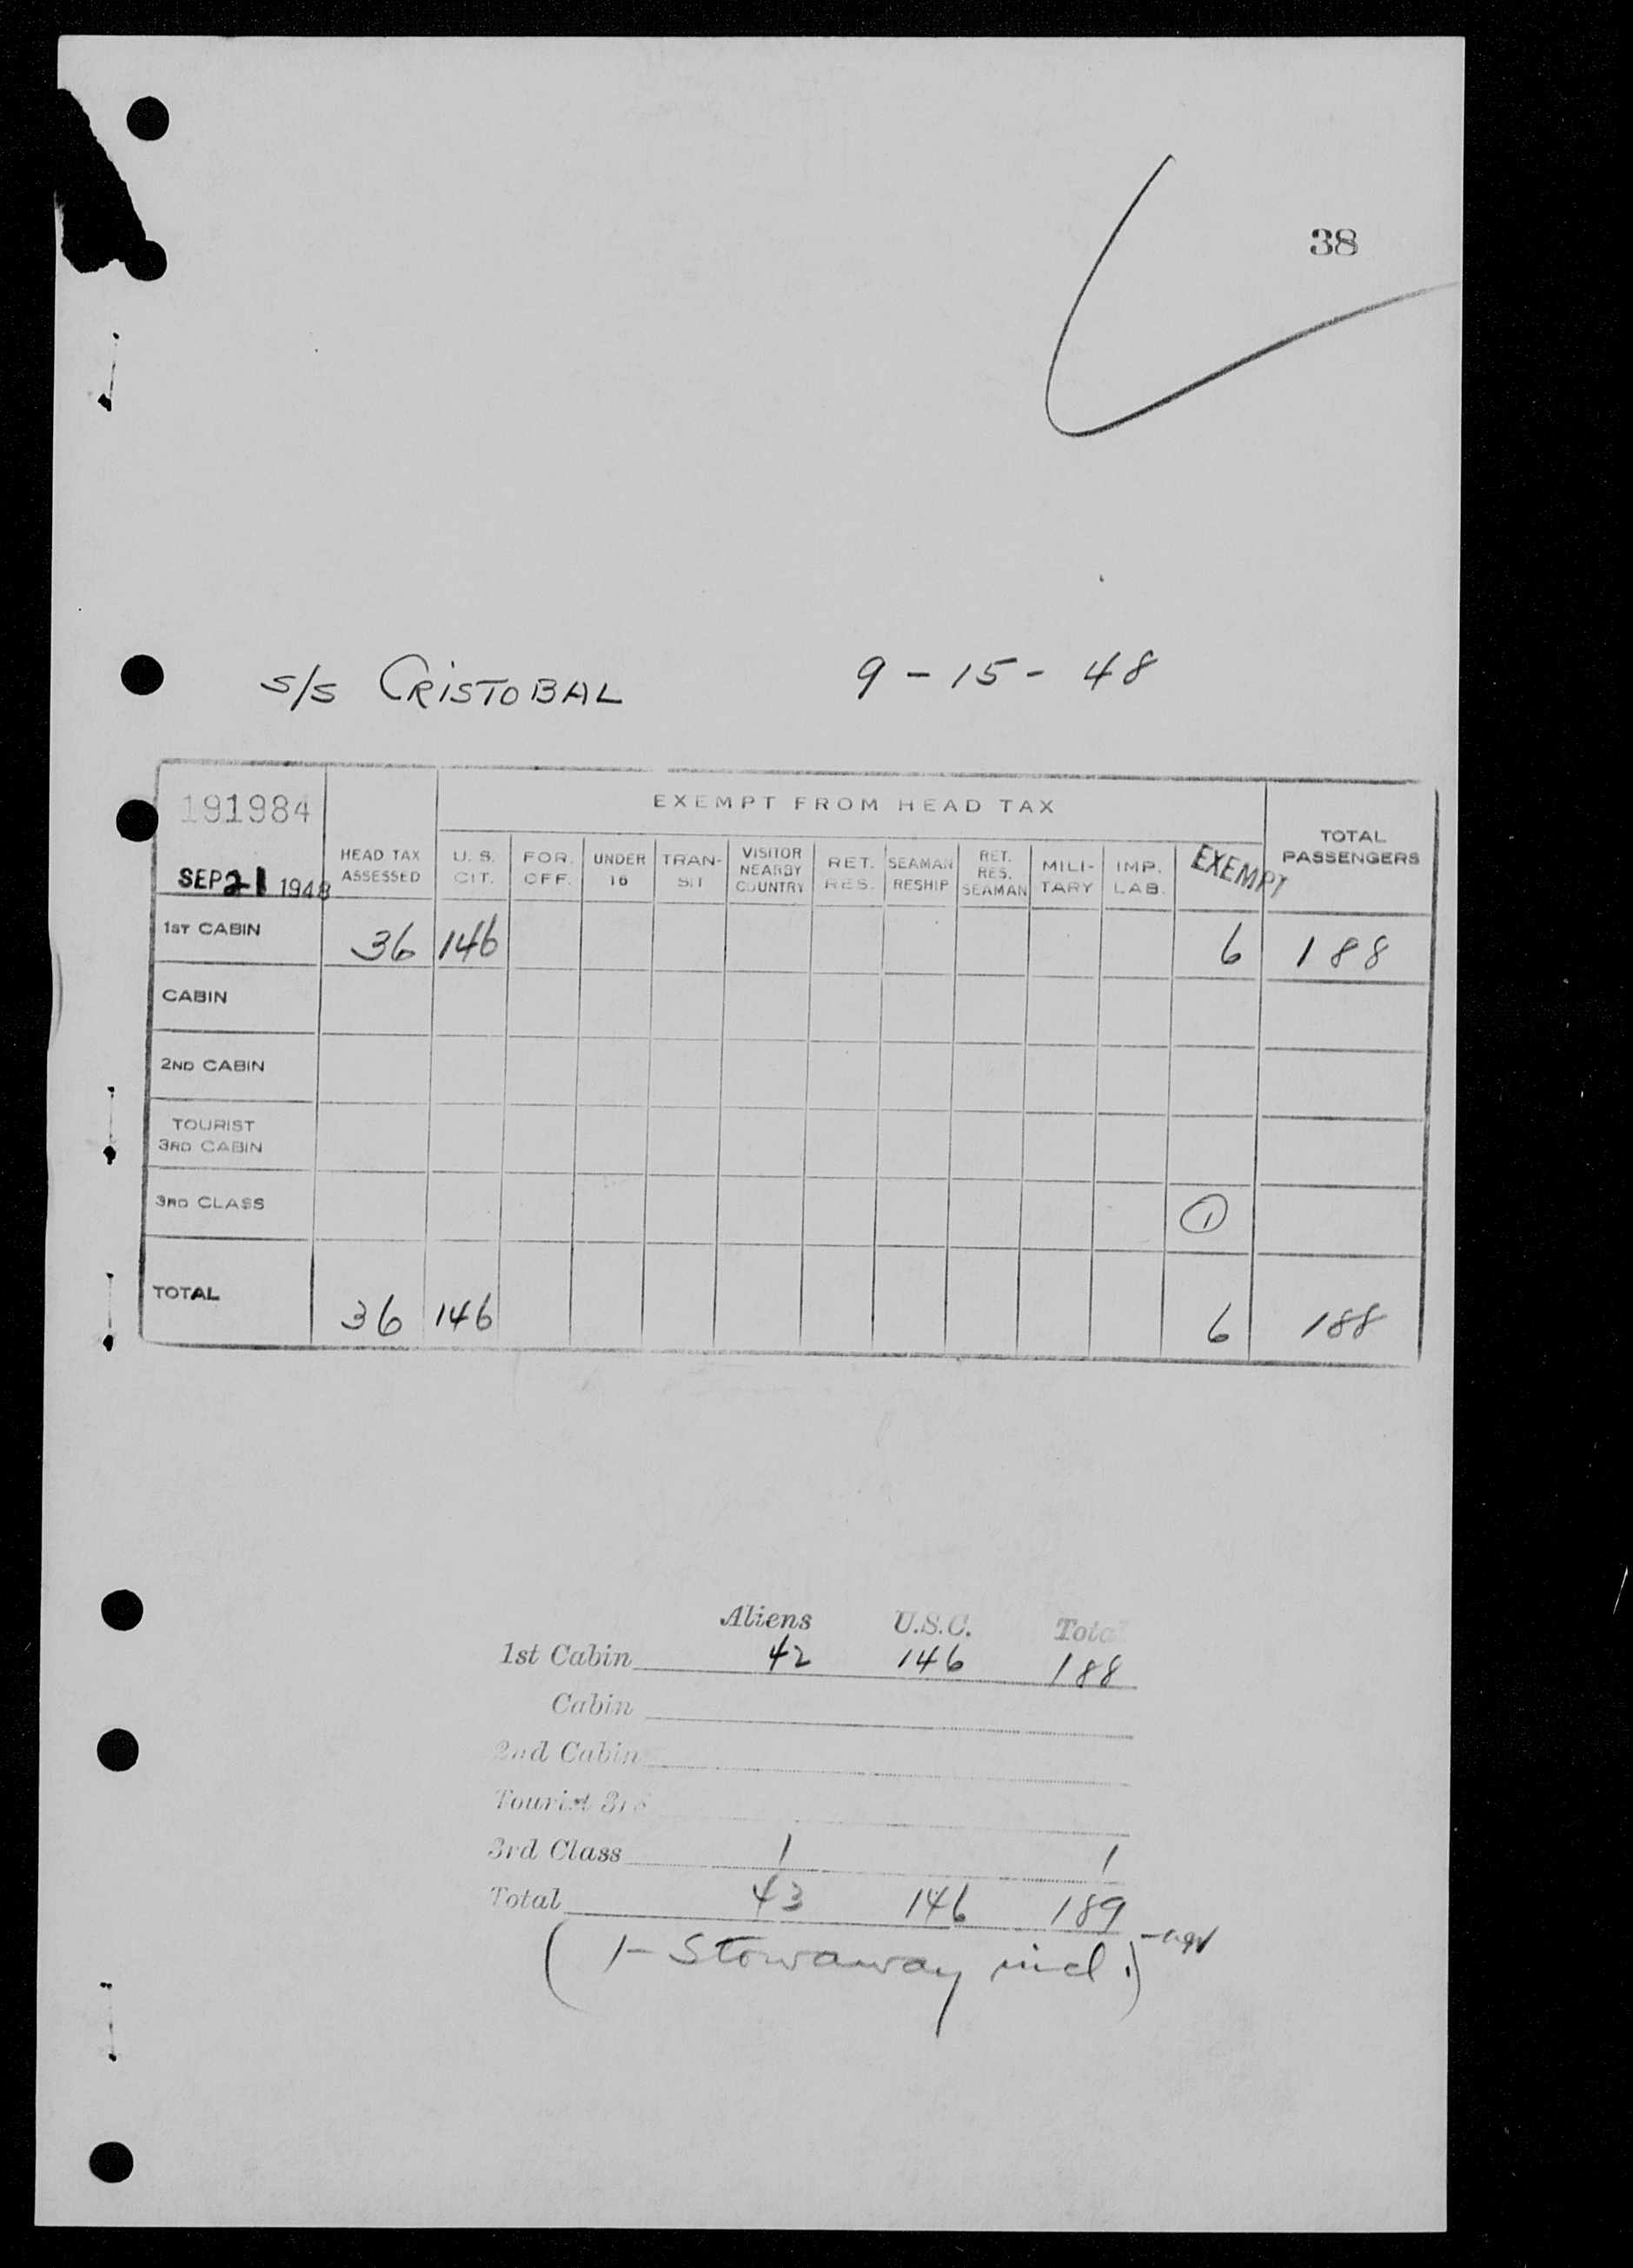 38
S/S CRISTOBAL 9-15-48
191984
SEP 21 1948
HEAD TAX ASSESSED
EXEMPT FROM HEAD TAX
U. S. CIT.
FOR. OFF.
UNDER 16
TRAN- SIT
VISITOR NEARBY COUNTRY
RET. RES.
SEAMAN RESHIP
RET. RES. SEAMAN
MILI- TARY
IMP. LAB.
EXEMPT
TOTAL PASSENGERS
1ST CABIN 36 146 6 188
CABIN
2ND CABIN
TOURIST
3RD CABIN
3RD CLASS 1
TOTAL 36 146 6 188
Aliens U.S.C. Total
1st Cabin 42 146 188
Cabin
2nd Cabin
Tourist 3rd
3rd Class 1 1
Total 43 146 189
(1- Stowaway incl.)